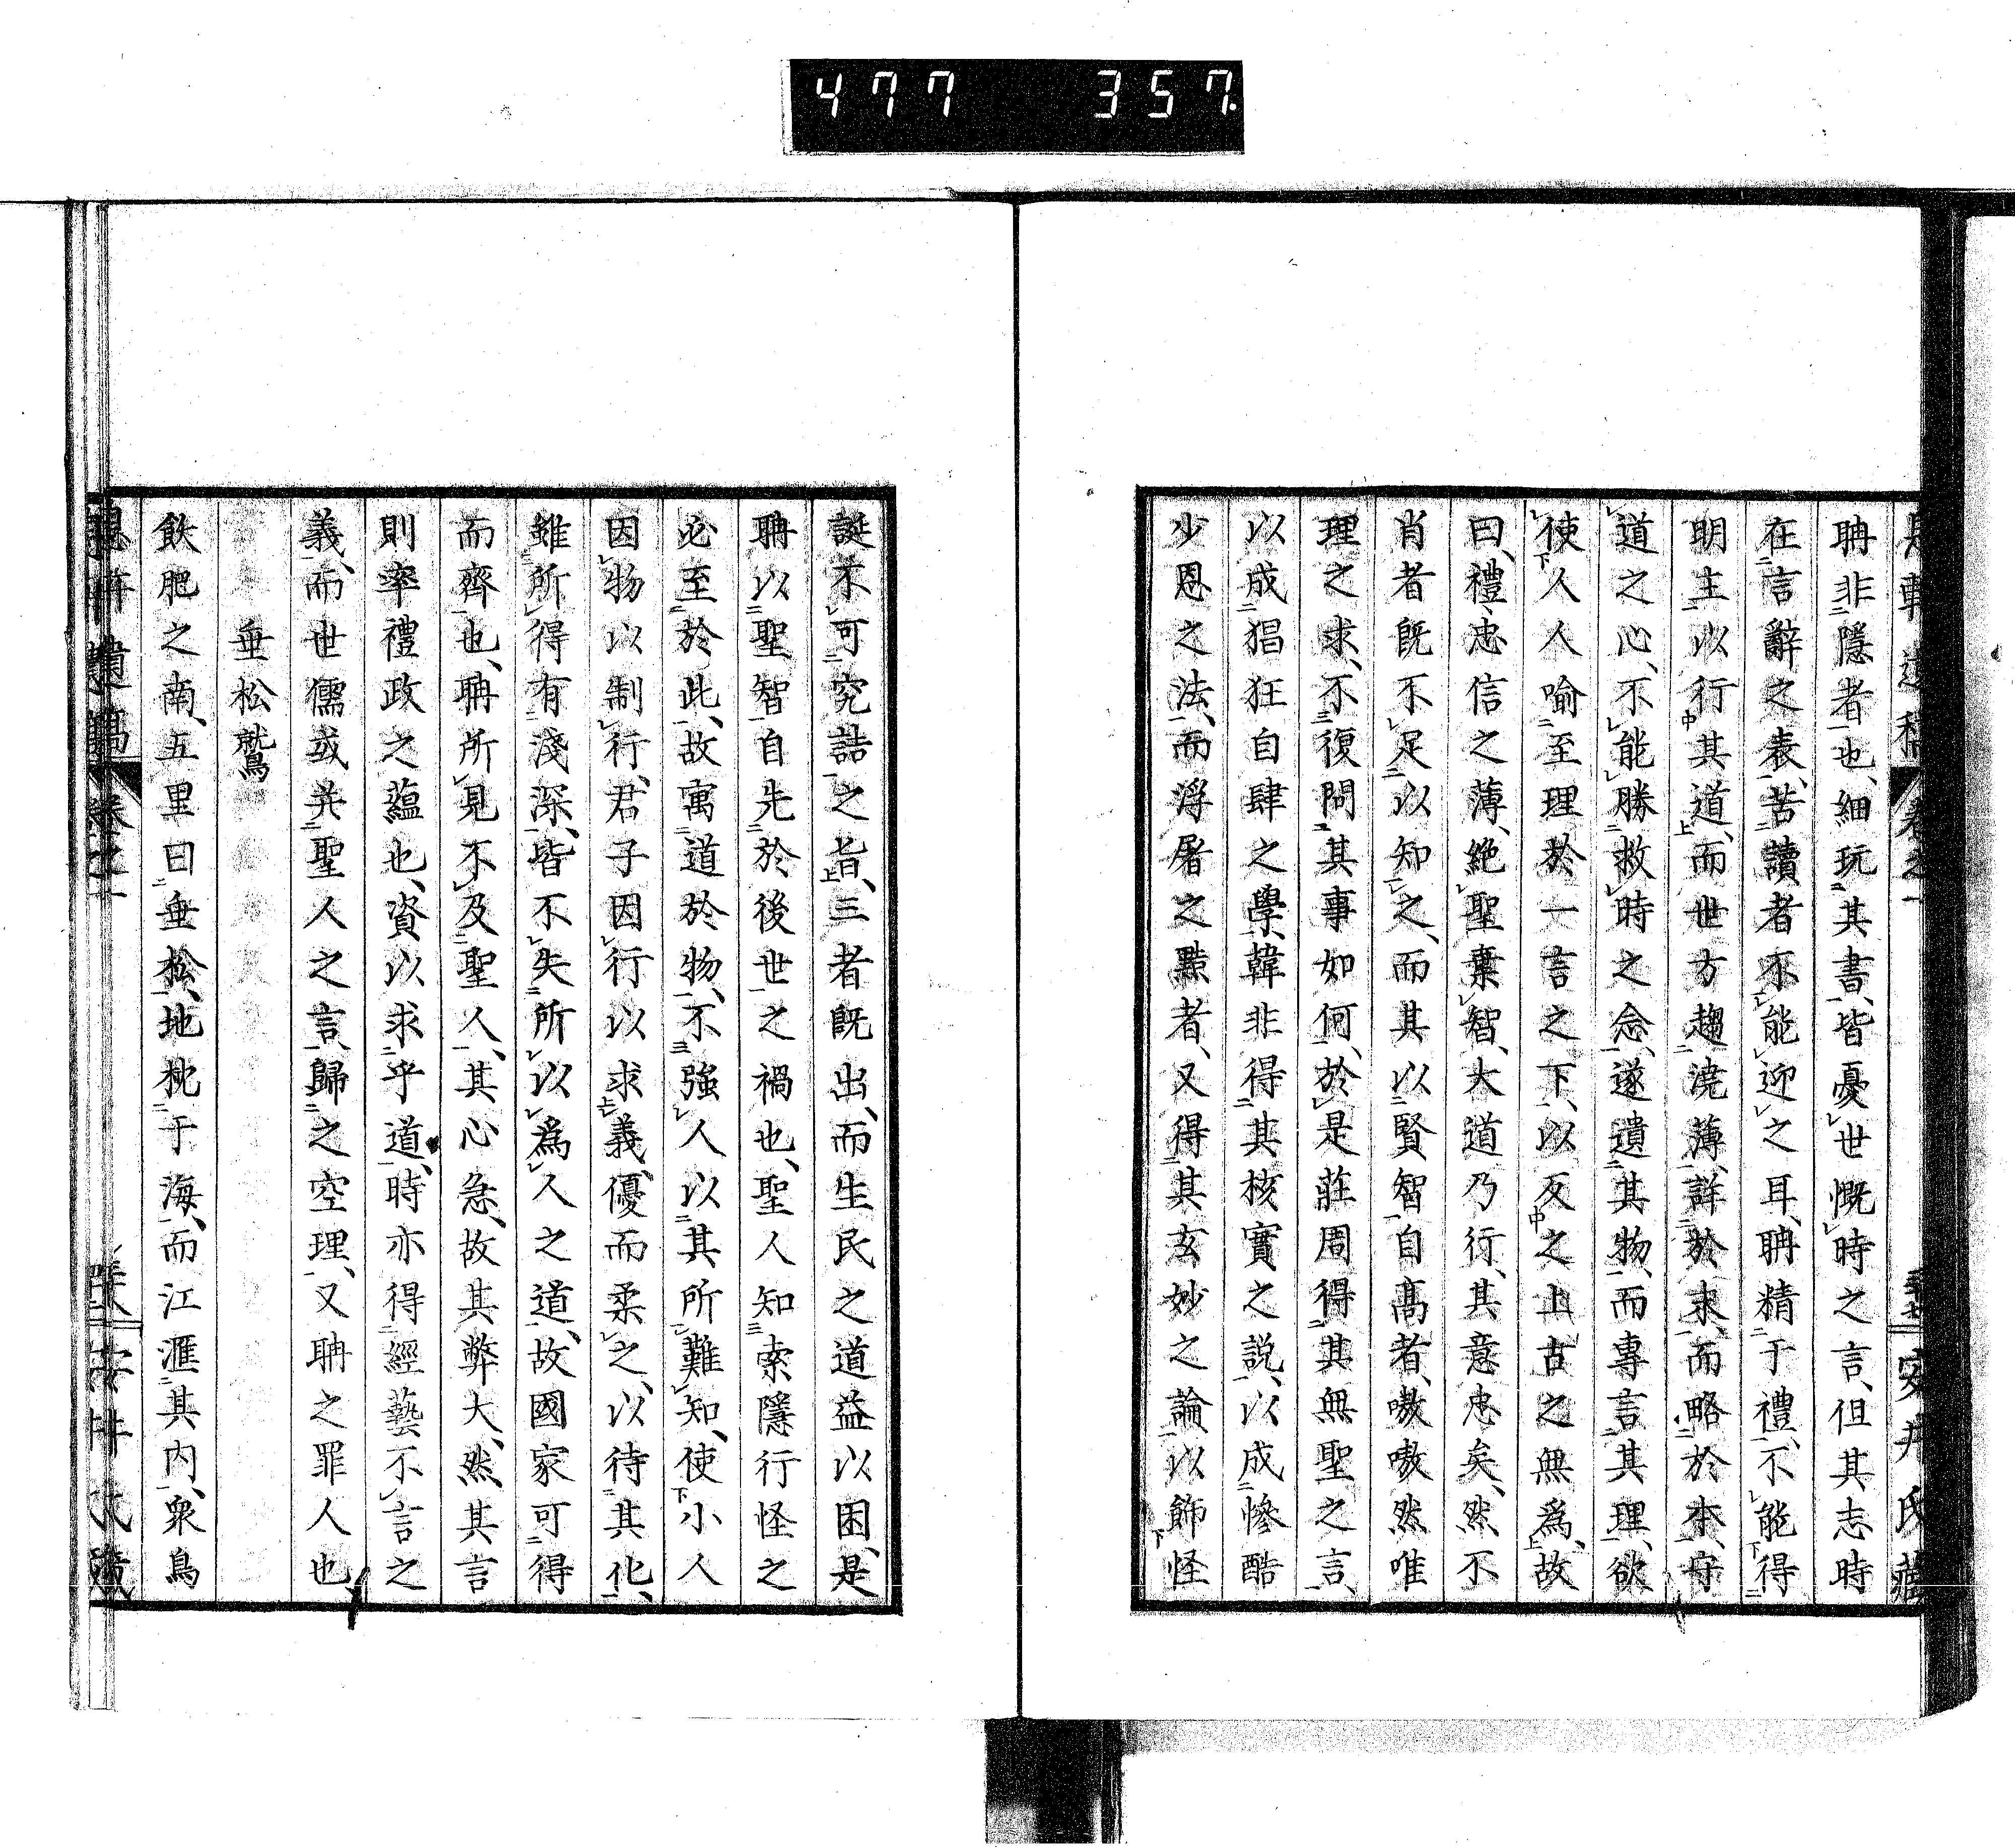 477 357.
聃非隱者也、細玩其書、皆憂世慨時之言、但其志時
在言辭之表、苦讀者不能迎之耳、聃精于禮、不能得
明主以行其道、而世方趨澆薄、詳於末、而略於本、守
道之心、不能勝救時之念、遂遺其物、而專言其理、欲
使人人喻至理於一言之下、以反之上古之無爲、故
曰、禮忠信之薄、絶聖棄智、大道乃行、其意忠矣、然不
肖者既不足以知之、而其以賢智自高者、嗷嗷然唯
理之求、不復問其事如何、於是莊周得其無聖之言、
以成猖狂自肆之學、韓非得其核實之說、以成慘酷
少恩之法、而浮屠之黠者、又得其玄妙之論、以飾怪
誕不可究詰之旨、三者既出、而生民之道益以困、是
聃以聖智自先於後世之禍也、聖人知索隱行怪之
必至於此、故寓道於物、不強人以其所難知、使小人
因物以制行、君子因行以求義、優而柔之、以待其化、
雖所得有淺深、皆不失所以爲人之道、故國家可得
而齊也、聃所見不及聖人、其心急、故其弊大、然其言
則率禮政之蘊也、資以求乎道、時亦得經藝不言之
義、而世儒或并聖人之言、歸之空理、又聃之罪人也
垂松鷲
飫肥之南、五里曰垂松、地枕于海、而江滙其内、衆鳥
卷之一
安井氏藏